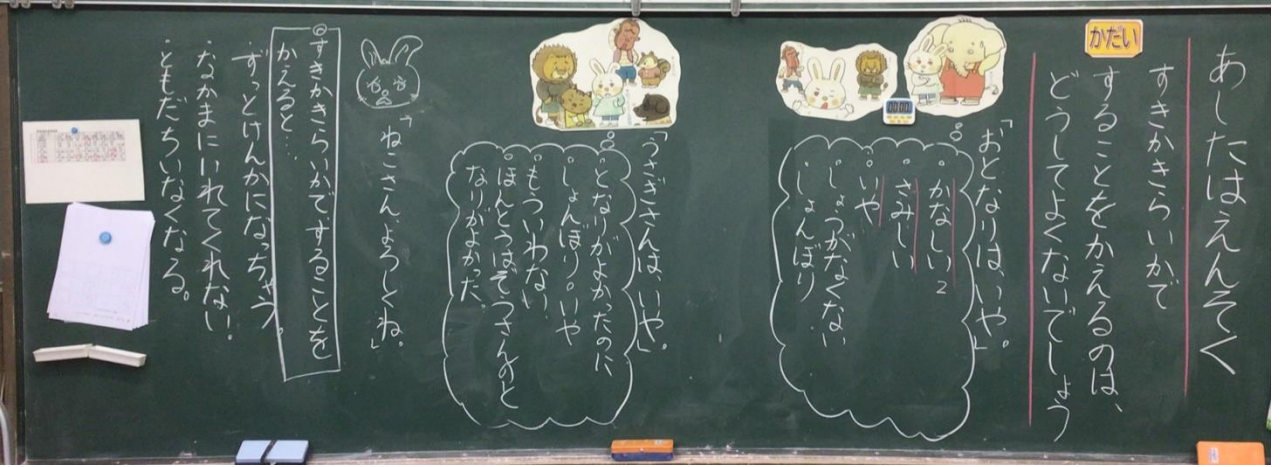 あしたはえんそく
かだい
すきかきらいかで
することをかえるのは、
どうしてよくないでしょう
「おとなりは、いや」。
・かなしい2
・さみしい
・いや
・しょうがなくない
・しょんぼり
00:00
「うさぎさんは、いや」。
・となりがよかったのに
・しょんぼり。いや
・もういわない
・ほんとうはぞうさんのと
なりがよかった
「ねこさん、よろしくね。」
◎すきかきらいかですることを
かえると…
・ずっとけんかになっちゃう。
・なかまにいれてくれない!
・ともだちいなくなる。